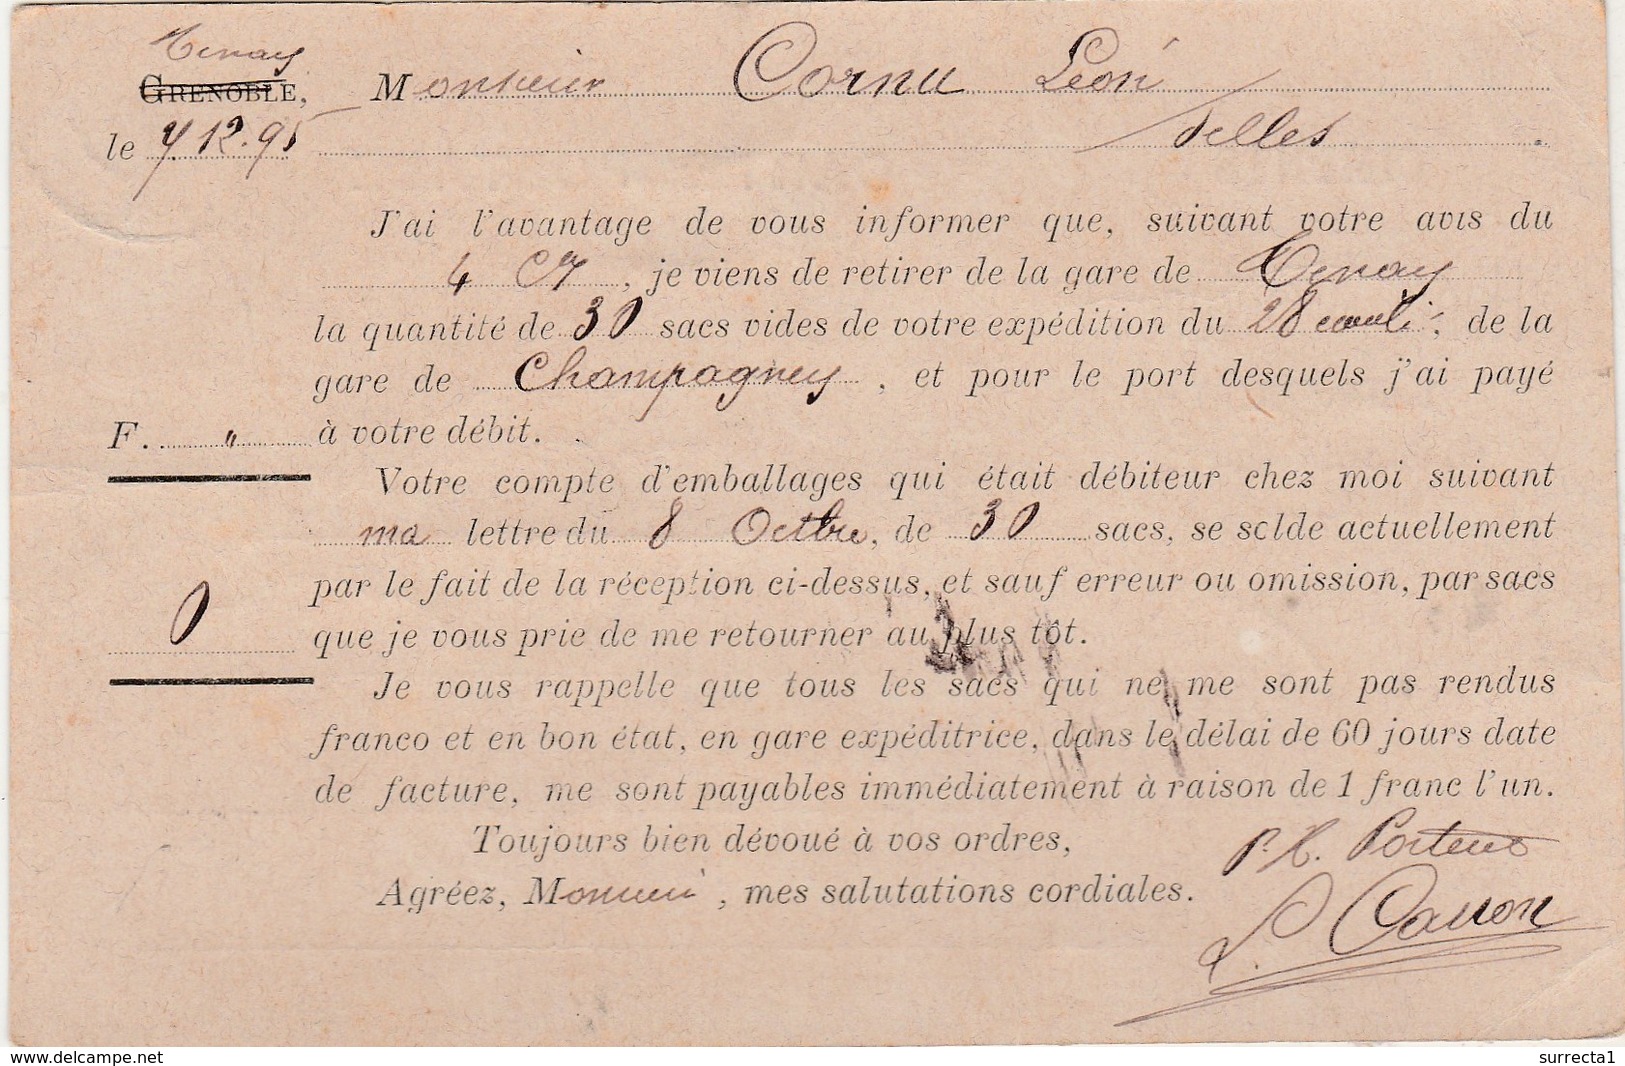 Tenay
GRENOBLE, Monsieur Cornu Léon
le 7.12.95 Selles
J'ai l'avantage de vous informer que, suivant votre avis du
4 Ct, je viens de retirer de la gare de Tenay
la quantité de 30 sacs vides de votre expédition du 28 , de la
gare de Champagney, et pour le port desquels j'ai payé
F. " à votre débit.
Votre compte d'emballages qui était débiteur chez moi suivant
ma lettre du 8 Octbre, de 30 sacs, se solde actuellement
par le fait de la réception ci-dessus, et sauf erreur ou omission, par sacs
0 que je vous prie de me retourner au plus tôt.
Je vous rappelle que tous les sacs qui ne me sont pas rendus
franco et en bon état, en gare expéditrice, dans le délai de 60 jours date
de facture, me sont payables immédiatement à raison de 1 franc l'un.
Toujours bien dévoué à vos ordres,
Agréez, Monsieur, mes salutations cordiales.
delcampe.net
surrecta1